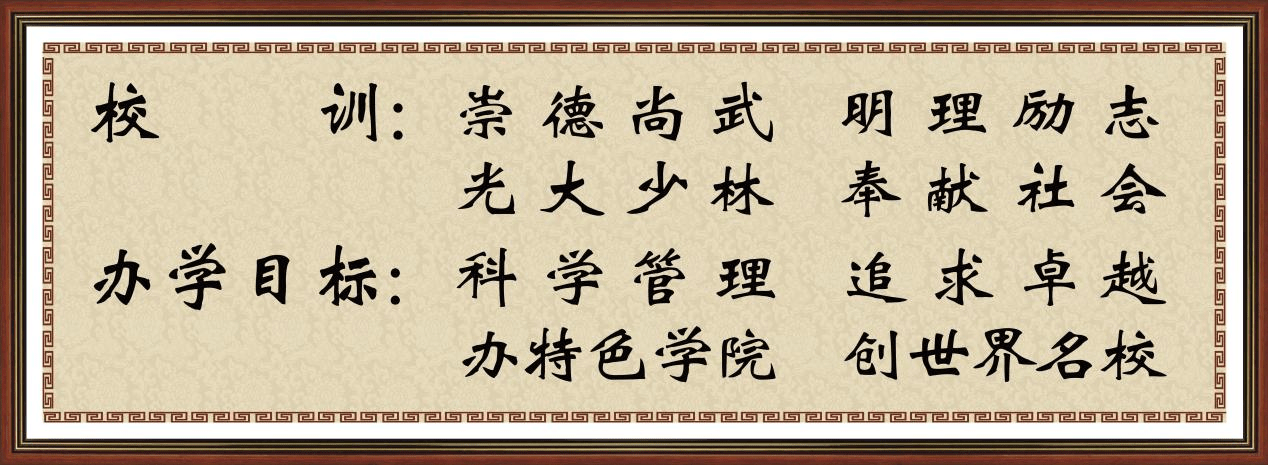 校训：崇德尚武 明理励志
光大少林 奉献社会
办学目标：科学管理 追求卓越
办特色学院 创世界名校